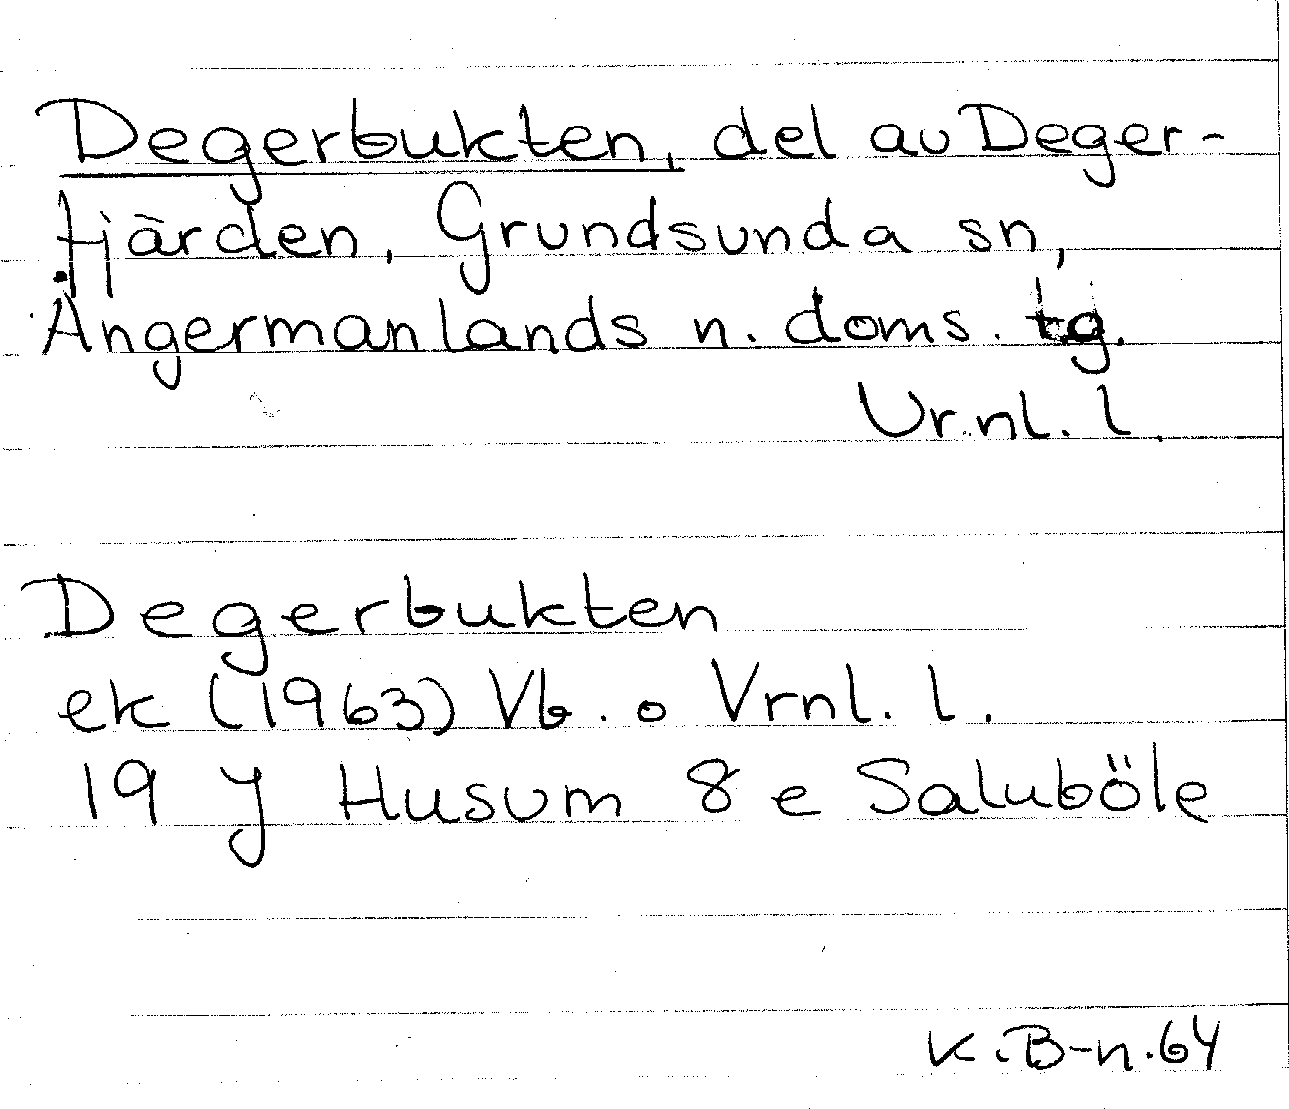 Degerbukten, del av Deger-
fjärden, Grundsunda sn,
Ångermanlands n. doms. tg.
Vrnl. l.
Degerbukten
ek (1963) Vb. o Vrnl. l.
19 J Husum 8 e Saluböle
K.B-n.64